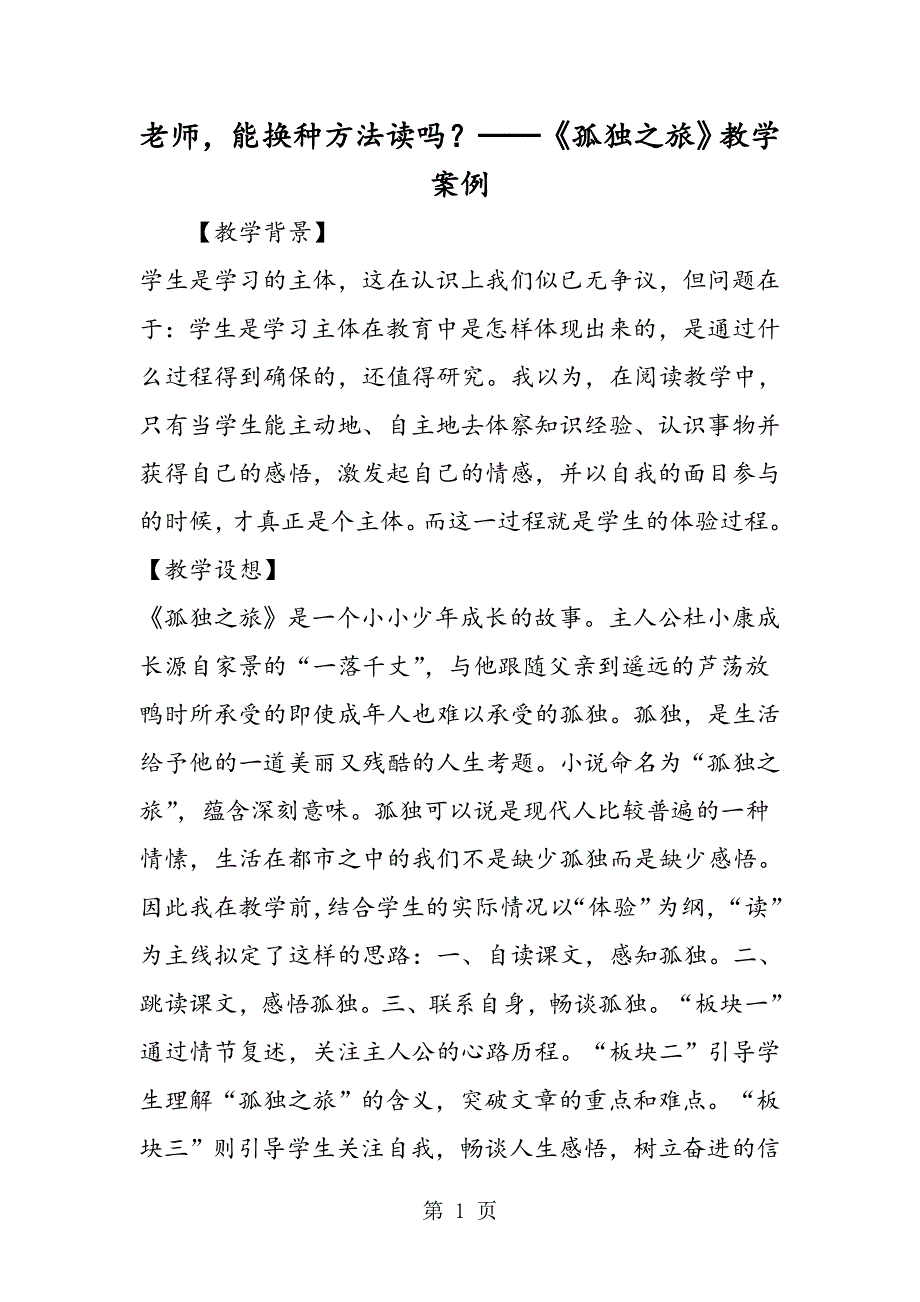 老师，能换种方法读吗？——《孤独之旅》教学
案例
【教学背景】
学生是学习的主体，这在认识上我们似已无争议，但问题在
于：学生是学习主体在教育中是怎样体现出来的，是通过什
么过程得到确保的，还值得研究。我以为，在阅读教学中，
只有当学生能主动地、自主地去体察知识经验、认识事物并
获得自己的感悟，激发起自己的情感，并以自我的面目参与
的时候，才真正是个主体。而这一过程就是学生的体验过程。
【教学设想】
《孤独之旅》是一个小小少年成长的故事。主人公杜小康成
长源自家景的“一落千丈”，与他跟随父亲到遥远的芦荡放
鸭时所承受的即使成年人也难以承受的孤独。孤独，是生活
给予他的一道美丽又残酷的人生考题。小说命名为“孤独之
旅”，蕴含深刻意味。孤独可以说是现代人比较普遍的一种
情愫，生活在都市之中的我们不是缺少孤独而是缺少感悟。
因此我在教学前，结合学生的实际情况以“体验”为纲，“读”
为主线拟定了这样的思路：一、自读课文，感知孤独。二、
跳读课文，感悟孤独。三、联系自身，畅谈孤独。“板块一”
通过情节复述，关注主人公的心路历程。“板块二”引导学
生理解“孤独之旅”的含义，突破文章的重点和难点。“板
块三”则引导学生关注自我，畅谈人生感悟，树立奋进的信
第 1 页